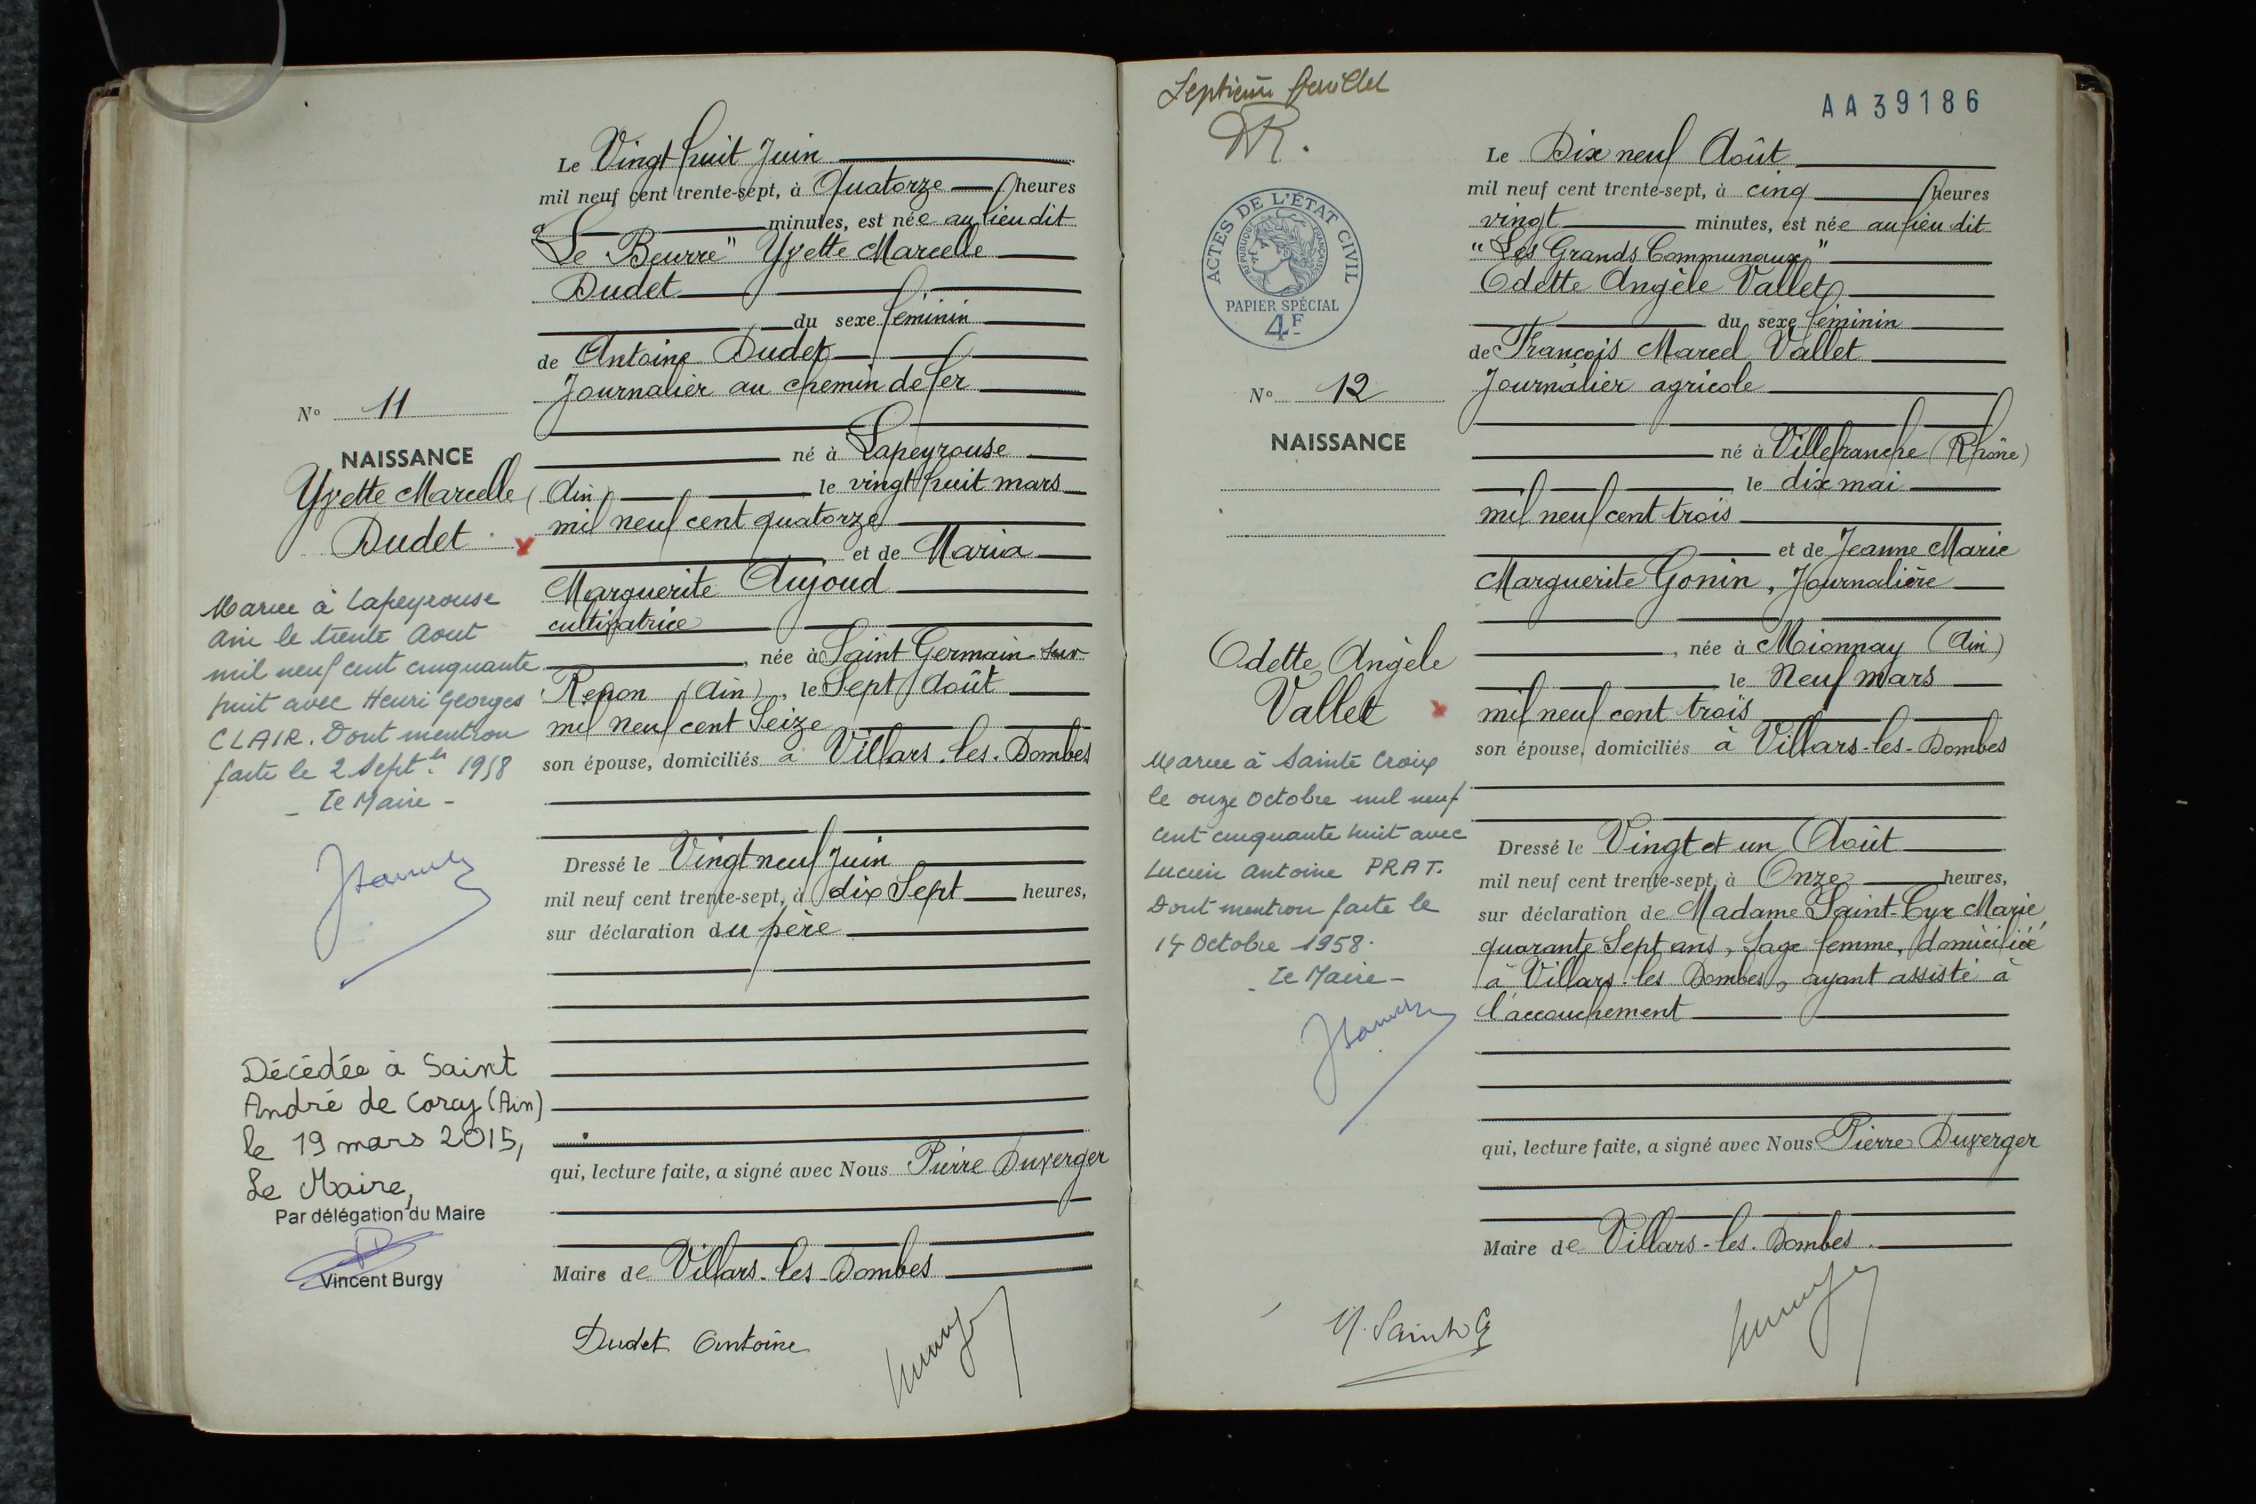 Le Vingt huit Juin
mil neuf cent trente-sept, à Quatorze heures
minutes, est née au lieu dit
"Le Beurre" Yvette Marcelle
Dudet
du sexe féminin
de Antoine Dudet
Journalier au chemin de fer
No 11
NAISSANCE
Yvette Marcelle
Dudet
né à Lapeyrouse
(Ain) le vingt huit mars
mil neuf cent quatorze
et de Maria
Marguerite Aujoud
cultivatrice
, née à Saint Germain-sur-
Renon (Ain), le Sept Août
mil neuf cent Seize
son épouse, domiciliés à Villars-les-Dombes
Mariée à Lapeyrouse
Ain le trente Aout
mil neuf cent cinquante
huit avec Henri Georges
CLAIR. Dont mention
faite le 2 Septbre 1958
- Le Maire -
Dressé le Vingt neuf Juin
mil neuf cent trente-sept, à dix Sept heures,
sur déclaration du père
Décédée à Saint
André de Corcy (Ain)
le 19 mars 2015,
Le Maire,
Par délégation du Maire
Vincent Burgy
qui, lecture faite, a signé avec Nous Pierre Duverger
Maire de Villars-les-Dombes
Dudet Antoine
Septième feuillet
DR.
AA39186
ACTES DE L'ÉTAT CIVIL
RÉPUBLIQUE FRANÇAISE
PAPIER SPÉCIAL
4F
Le Dix neuf Août
mil neuf cent trente-sept, à cinq heures
vingt minutes, est née au lieu dit
"Les Grands Communaux"
Odette Angèle Vallet
du sexe féminin
de François Marcel Vallet
Journalier agricole
No 12
NAISSANCE
né à Villefranche (Rhône)
le dix mai
mil neuf cent trois
et de Jeanne Marie
Marguerite Gonin, Journalière
, née à Mionnay (Ain)
le Neuf mars
mil neuf cent trois
son épouse, domiciliés à Villars-les-Dombes
Odette Angèle
Vallet
Mariée à Sainte Croix
le onze Octobre mil neuf
cent cinquante huit avec
Lucien Antoine PRAT.
Dont mention faite le
14 Octobre 1958.
- Le Maire -
Dressé le Vingt et un Août
mil neuf cent trente-sept, à Onze heures,
sur déclaration de Madame Saint-Cyr Marie,
quarante Sept ans, Sage femme, domiciliée
à Villars-les-Dombes, ayant assisté à
l'accouchement
qui, lecture faite, a signé avec Nous Pierre Duverger
Maire de Villars-les-Dombes.
M. Saint Cyr